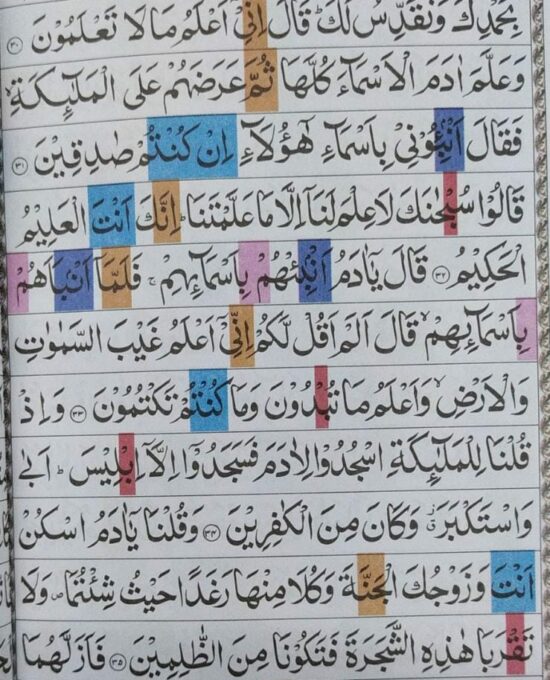 بِحَمْدِكَ وَنُقَدِّسُ لَكَ ؕ قَالَ اِنِّیْۤ اَعْلَمُ مَا لَا تَعْلَمُوْنَ ﴿۳۰﴾
وَعَلَّمَ اٰدَمَ الْاَسْمَآءَ كُلَّهَا ثُمَّ عَرَضَهُمْ عَلَی الْمَلٰٓئِكَةِ ۙ
فَقَالَ اَنْۢبِـُٔوْنِیْ بِاَسْمَآءِ هٰۤؤُلَآءِ اِنْ كُنْتُمْ صٰدِقِیْنَ ﴿۳۱﴾
قَالُوْا سُبْحٰنَكَ لَا عِلْمَ لَنَاۤ اِلَّا مَا عَلَّمْتَنَا ؕ اِنَّكَ اَنْتَ الْعَلِیْمُ
الْحَكِیْمُ ﴿۳۲﴾ قَالَ یٰۤاٰدَمُ اَنْۢبِئْهُمْ بِاَسْمَآئِهِمْ ۚ فَلَمَّاۤ اَنْۢبَاَهُمْ
بِاَسْمَآئِهِمْ ۙ قَالَ اَلَمْ اَقُلْ لَّكُمْ اِنِّیْۤ اَعْلَمُ غَیْبَ السَّمٰوٰتِ
وَالْاَرْضِ ۙ وَاَعْلَمُ مَا تُبْدُوْنَ وَمَا كُنْتُمْ تَكْتُمُوْنَ ﴿۳۳﴾ وَاِذْ
قُلْنَا لِلْمَلٰٓئِكَةِ اسْجُدُوْا لِاٰدَمَ فَسَجَدُوْۤا اِلَّاۤ اِبْلِیْسَ ؕ اَبٰی
وَاسْتَكْبَرَ ۗ وَكَانَ مِنَ الْكٰفِرِیْنَ ﴿۳۴﴾ وَقُلْنَا یٰۤاٰدَمُ اسْكُنْ
اَنْتَ وَزَوْجُكَ الْجَنَّةَ وَكُلَا مِنْهَا رَغَدًا حَیْثُ شِئْتُمَا ۪ وَلَا
تَقْرَبَا هٰذِهِ الشَّجَرَةَ فَتَكُوْنَا مِنَ الظّٰلِمِیْنَ ﴿۳۵﴾ فَاَزَلَّهُمَا